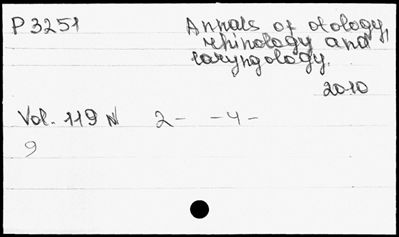 P3251 Annals of otology,
rhinology and
laryngology.
2010
Vol. 119 N 2- -4-
9